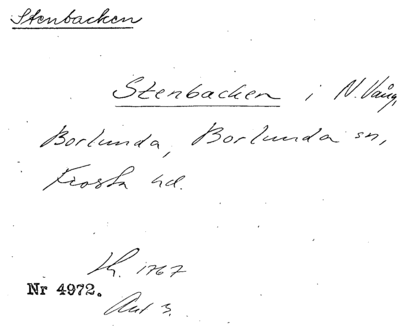 Stenbacken
Stenbacken i N. Vång,
Borlunda, Borlunda sn,
Frosta hd.
Lh. 1767
Nr 4972.
Akt 3.